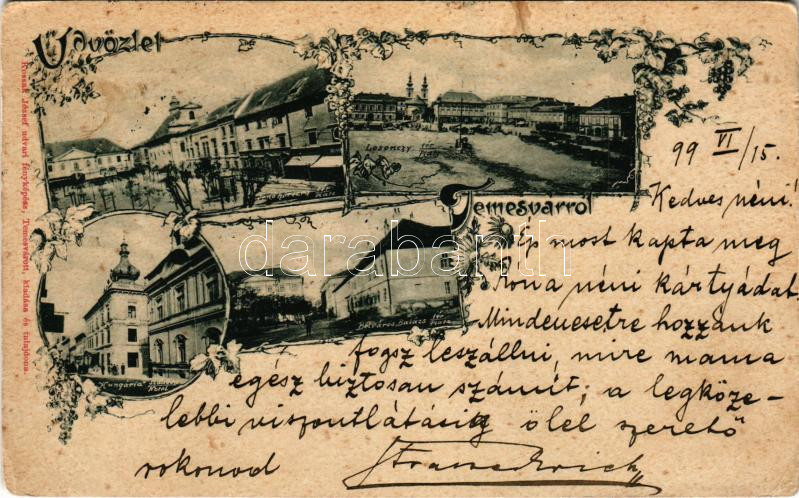 Üdvözlet
Temesvárról
Kossak József udvari fényképész, Temesvárott, kiadása és tulajdona.
Losonczy tér
Belváros, Balázs tér
"Hungária"
Hotel
darabanth
99 VI/15.
Kedves néni!
Ép most kapta meg
Ilona néni kártyádat.
Mindenesetre hozzánk
fogsz leszállni, mire mama
egész biztosan számít; a legköze-
lebbi viszontlátásig ölel szerető
rokonod